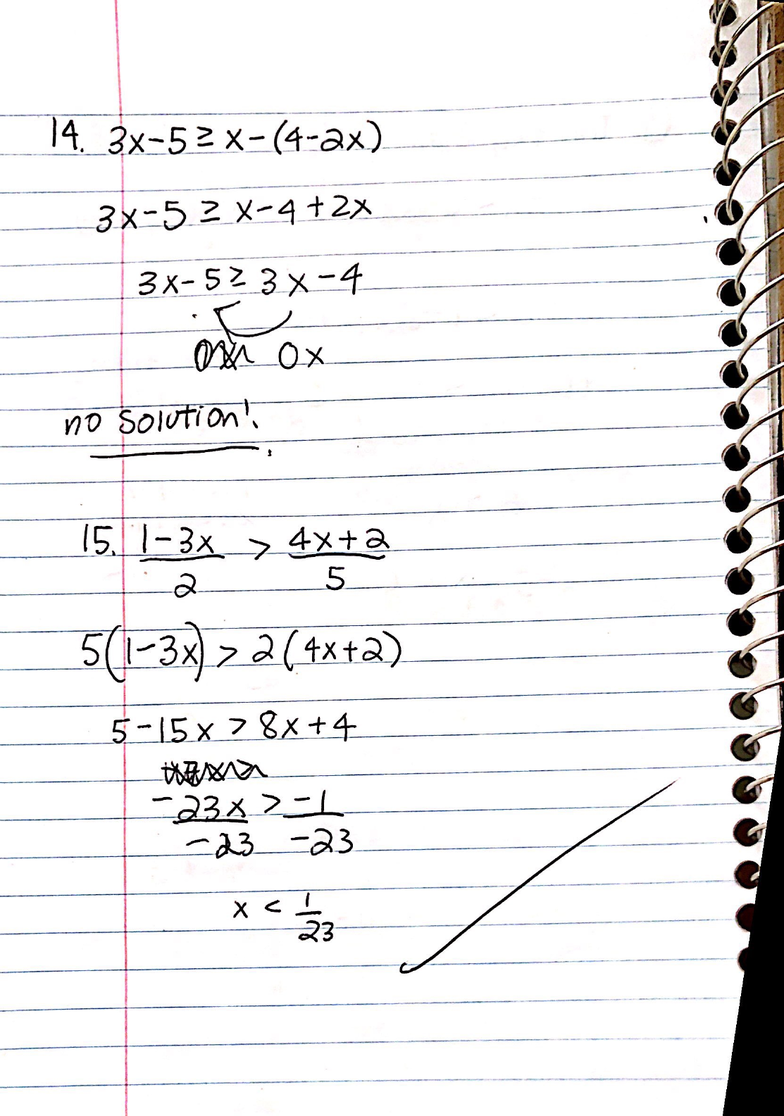 14. 3x-5 ≥ x-(4-2x)
3x-5 ≥ x-4+2x
3x-5 ≥ 3x-4
0x
no solution!.
15. (1-3x)/2 > (4x+2)/5
5(1-3x) > 2(4x+2)
5-15x > 8x+4
-23x/-23 > -1/-23
x < 1/23